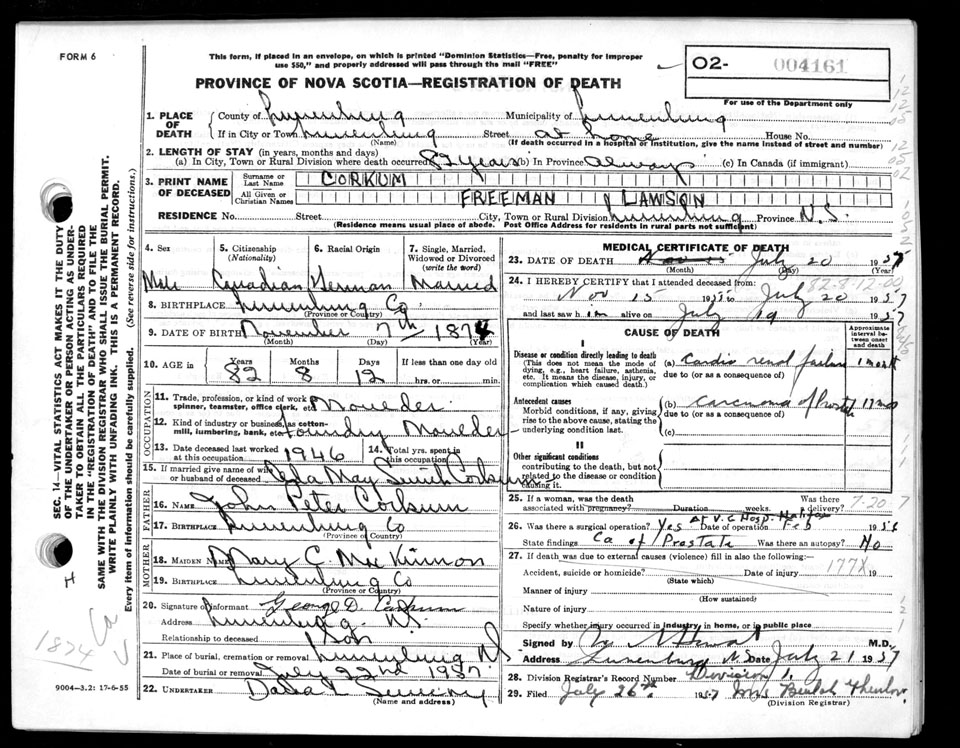 FORM 6
This form, if placed in an envelope, on which is printed "Dominion Statistics—Free, penalty for improper
use $50," and properly addressed will pass through the mail "FREE"
PROVINCE OF NOVA SCOTIA—REGISTRATION OF DEATH
02- 004161
For use of the Department only
1. PLACE OF DEATH
County of Lunenburg Municipality of Lunenburg
If in City or Town Lunenburg Street at home House No.
(Name) (If death occurred in a hospital or institution, give the name instead of street and number)
2. LENGTH OF STAY (in years, months and days)
(a) In City, Town or Rural Division where death occurred 82 years (b) In Province always (c) In Canada (if immigrant)
3. PRINT NAME OF DECEASED
Surname or Last Name CORKUM
All Given or Christian Names FREEMAN LAWSON
RESIDENCE No. Street City, Town or Rural Division Lunenburg Province N.S.
(Residence means usual place of abode. Post Office Address for residents in rural parts not sufficient)
4. Sex Male
5. Citizenship (Nationality) Canadian
6. Racial Origin German
7. Single, Married, Widowed or Divorced (write the word) Married
8. BIRTHPLACE Lunenburg Co.
(Province or Country)
9. DATE OF BIRTH November 7th 1874
(Month) (Day) (Year)
10. AGE in Years 82 Months 8 Days 12 If less than one day old hrs. or min.
OCCUPATION
11. Trade, profession, or kind of work as spinner, teamster, office clerk, etc. Moulder
12. Kind of industry or business, as cotton-mill, lumbering, bank, etc. Foundry Moulder
13. Date deceased last worked at this occupation 1946
14. Total yrs. spent in this occupation
15. If married give name of wife or husband of deceased May Smith Corkum
FATHER
16. NAME John Peter Corkum
17. BIRTHPLACE Lunenburg Co
(Province or Country)
MOTHER
18. MAIDEN NAME Mary C. MacKinnon
19. BIRTHPLACE Lunenburg Co
20. Signature of informant George D. Corkum
Address Lunenburg N.S.
Relationship to deceased Son
21. Place of burial, cremation or removal Lunenburg N.S
Date of burial or removal July 22nd 1957
22. UNDERTAKER
(Name and address)
9004—3.2: 17-6-55
MEDICAL CERTIFICATE OF DEATH
23. DATE OF DEATH July 20 1957
(Month) (Day) (Year)
24. I HEREBY CERTIFY that I attended deceased from:
Nov 15 to July 20 1957
82-8-12-00
and last saw him alive on July 19 1957
CAUSE OF DEATH
Approximate interval between onset and death
I
Disease or condition directly leading to death
(This does not mean the mode of dying, e.g., heart failure, asthenia, etc. It means the disease, injury, or complication which caused death.)
(a) Cardio renal failure 1 month
due to (or as a consequence of)
Antecedent causes
Morbid conditions, if any, giving rise to the above cause, stating the underlying condition last.
(b) Carcinoma of Prostate
due to (or as a consequence of)
(c)
II
Other significant conditions
contributing to the death, but not related to the disease or condition causing it.
25. If a woman, was the death associated with pregnancy? Duration weeks. Was there a delivery?
7-20 7
26. Was there a surgical operation? Yes Date of operation Feb
At V.G. Hosp. Halifax
State findings Ca of Prostate Was there an autopsy? No
27. If death was due to external causes (violence) fill in also the following:—
Accident, suicide or homicide? Date of injury 19
177X
(State which)
Manner of injury
(How sustained)
Nature of injury
Specify whether injury occurred in industry, in home, or in public place
Signed by M.D.
Address Lunenburg N.S. Date July 21 1957
28. Division Registrar's Record Number Division 1.
29. Filed July 26th 1957 Mrs Beulah
(Division Registrar)
SEC. 14—VITAL STATISTICS ACT MAKES IT THE DUTY
OF THE UNDERTAKER OR PERSON ACTING AS UNDER-
TAKER TO OBTAIN ALL THE PARTICULARS REQUIRED
IN THE "REGISTRATION OF DEATH" AND TO FILE THE
SAME WITH THE DIVISION REGISTRAR WHO SHALL ISSUE THE BURIAL PERMIT.
WRITE PLAINLY WITH UNFADING INK. THIS IS A PERMANENT RECORD.
Every item of Information should be carefully supplied. (See reverse side for instructions.)
1874